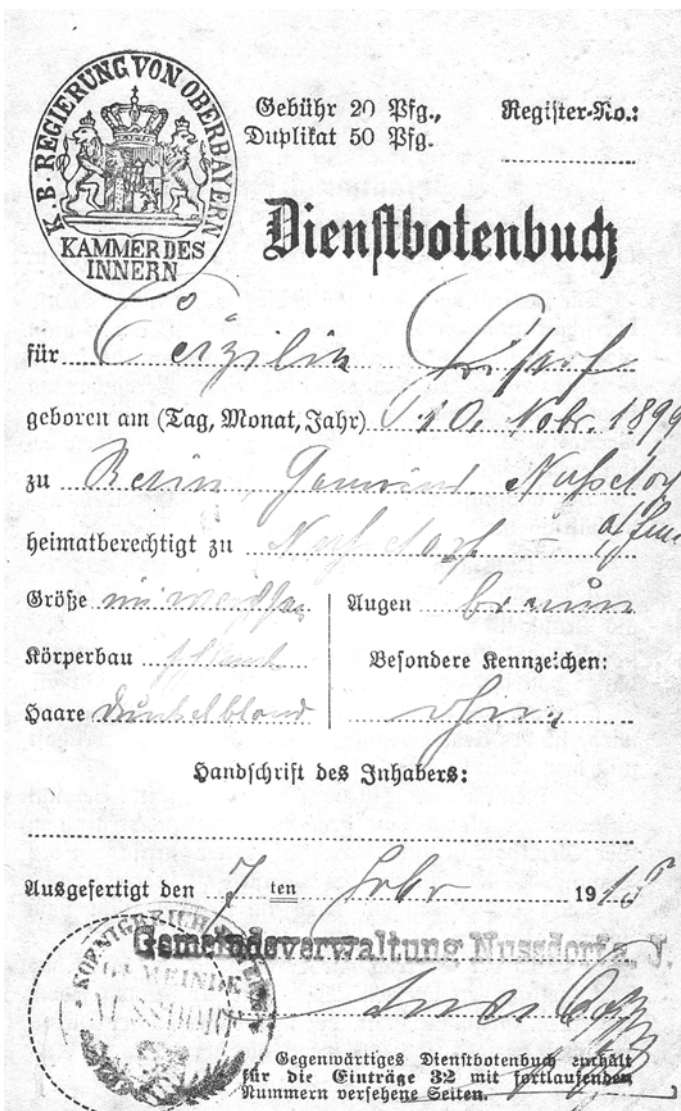 K. B. REGIERUNG VON OBERBAYERN
KAMMER DES
INNERN
Gebühr 20 Pfg.,
Duplikat 50 Pfg.
Register-No.:
Dienstbotenbuch
für Cäzilia
geboren am (Tag, Monat, Jahr) 10. Nobr. 1899
zu Gemeind. Nußdorf
heimatberechtigt zu Nußdorf
Größe
Augen braun
Körperbau schlank
Besondere Kennzeichen:
Haare dunkelblond
ohne
Handschrift des Inhabers:
Ausgefertigt den 7 ten Febr 1915
Gemeindeverwaltung Nussdorf a. J.
KOENIGREICH
GEMEINDE
NUSSDORF
Gegenwärtiges Dienstbotenbuch enthält
für die Einträge 32 mit fortlaufenden
Nummern versehene Seiten.